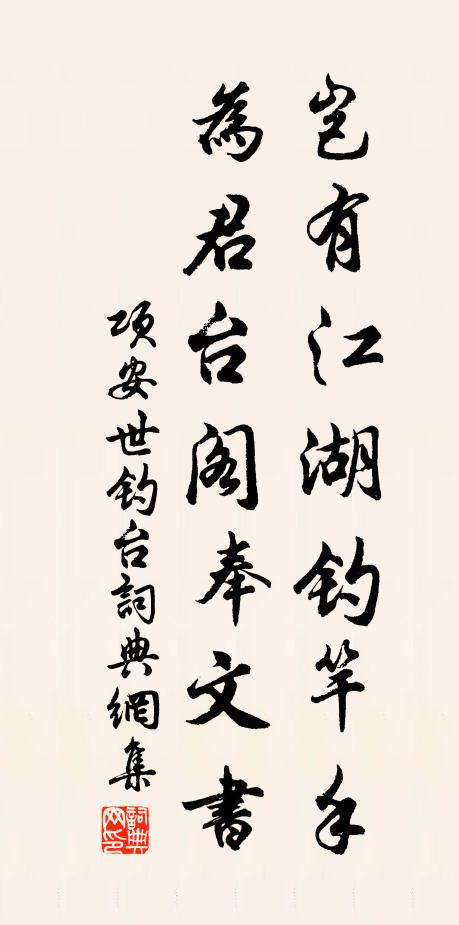 豈有江湖钓竿手
為君台阁奉文書
项安世钓台詞典網集
詞典网印